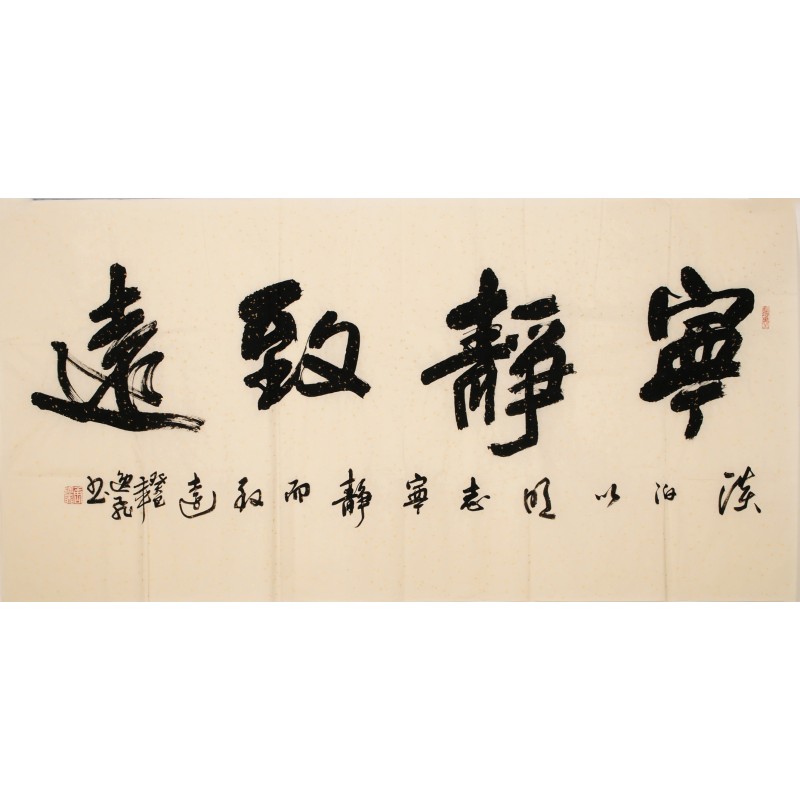 寧靜致遠
淡泊以明志寧靜而致遠
逸飛書